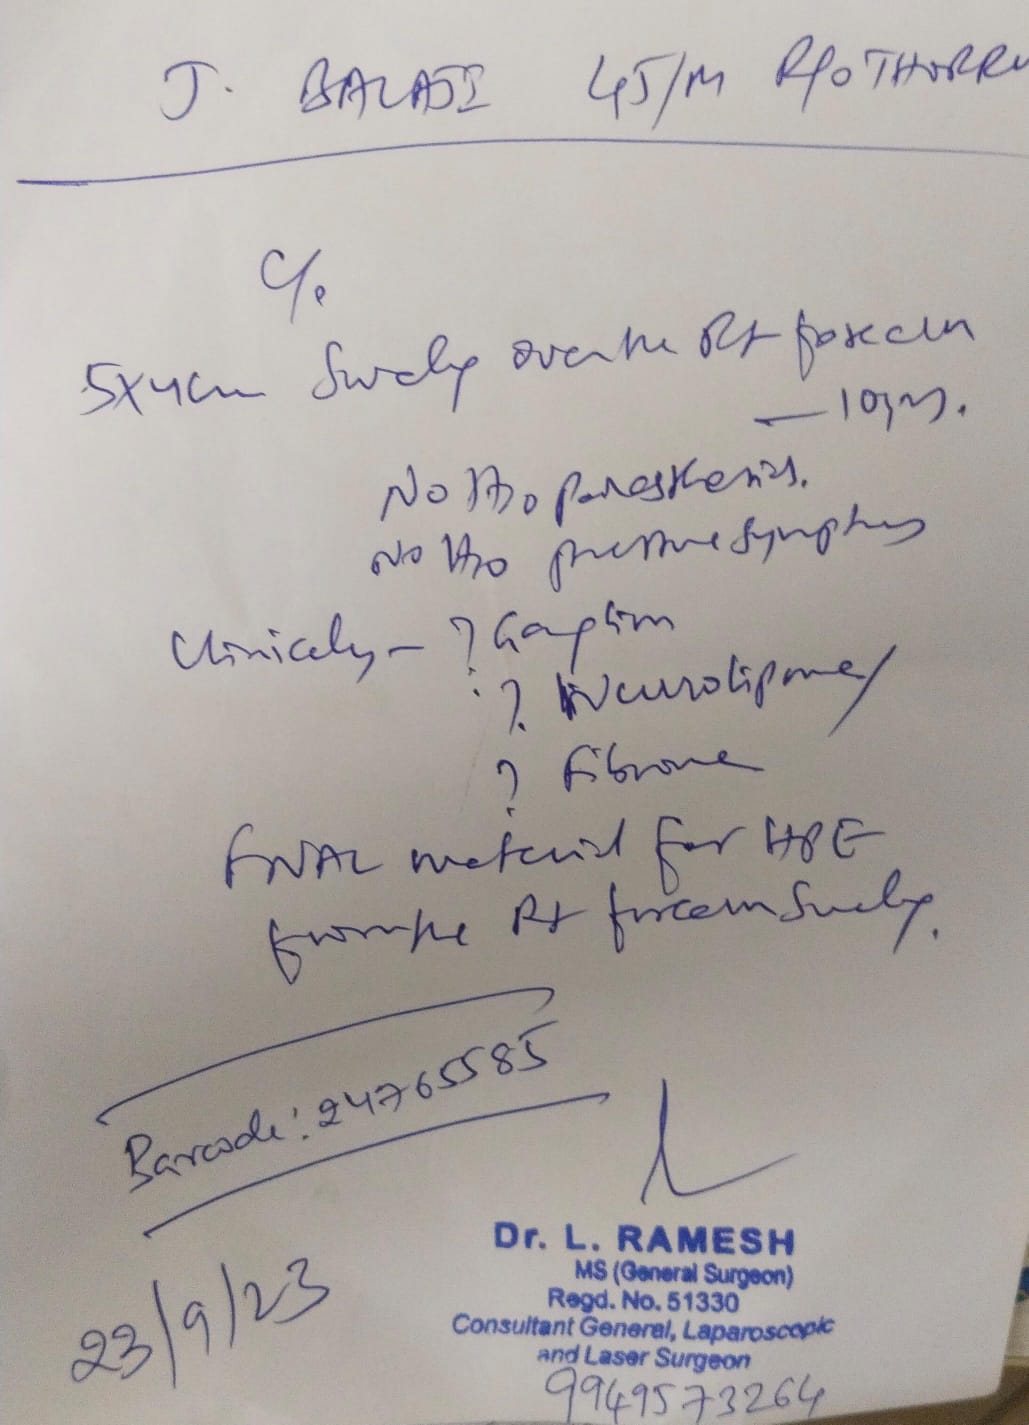 J. BALAJI 45/M R/o THORRU
C/o
5x4cm Swelling over the Rt forearm
— 10 yrs.
No H/o paresthesias.
No H/o pressure symptoms
Clinically - ? Ganglion
? Neurolipoma
? Fibroma
FNAC material for HPE
from the Rt forearm Swelling.
Barcode: 24765585
23/9/23
Dr. L. RAMESH
MS (General Surgeon)
Regd. No. 51330
Consultant General, Laparoscopic
and Laser Surgeon
9949573264